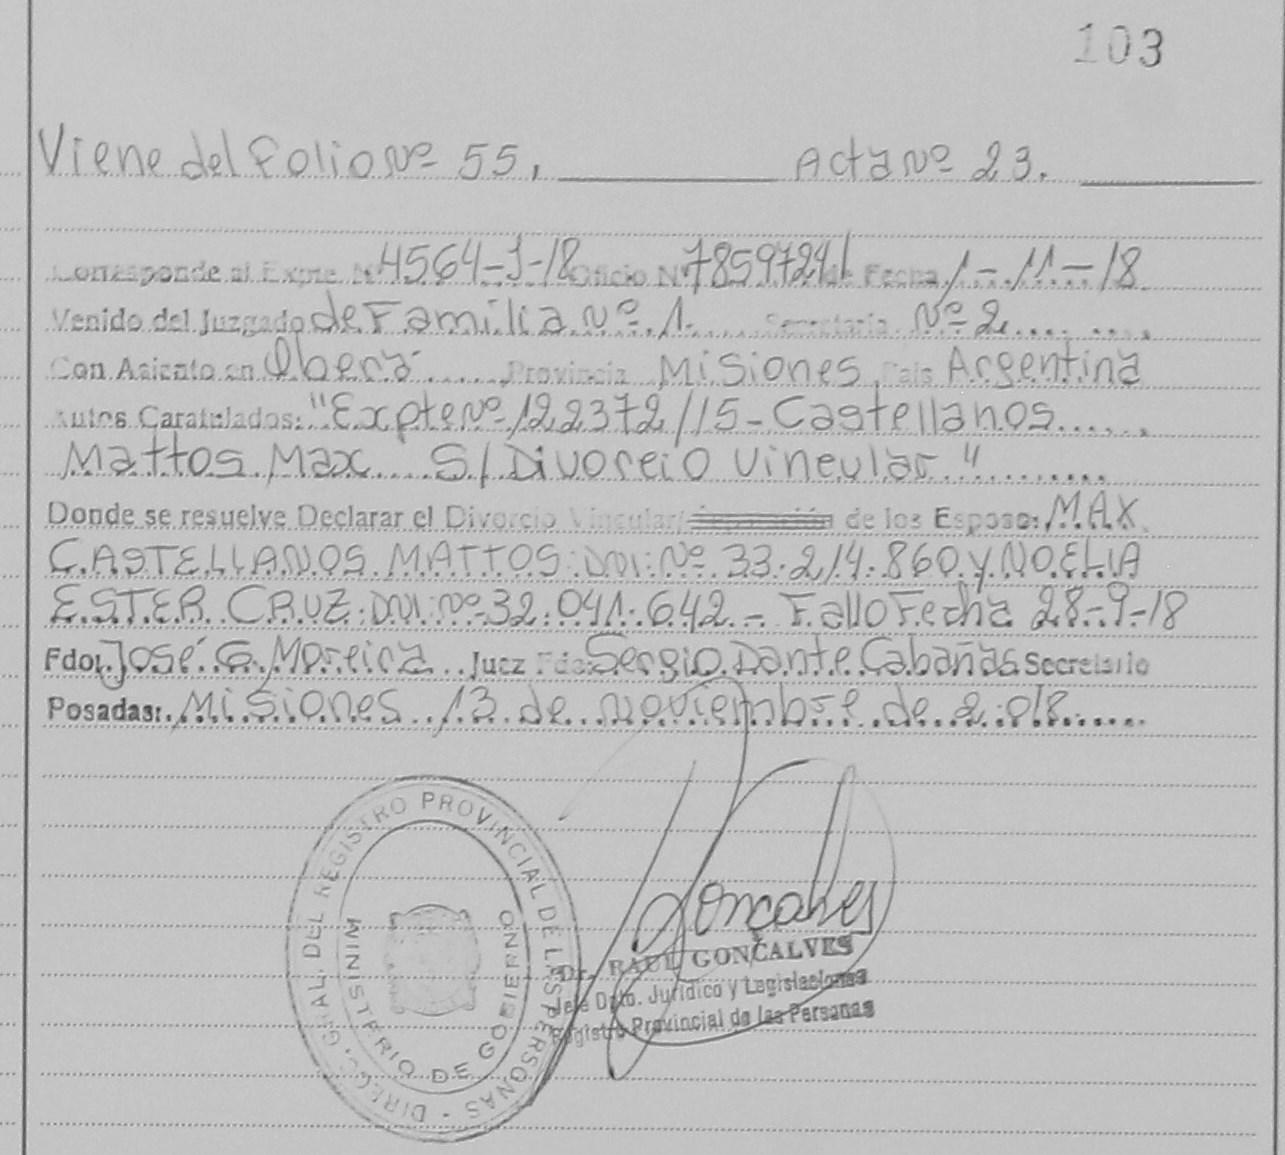 103
Viene del Folio Nº 55. Acta Nº 23.
Corresponde al Expte Nº 4564-J-18 Oficio Nº 7859724 de Fecha 1-11-18
Venido del Juzgado de Familia Nº 1. Secretaria Nº 2
Con Asiento en Oberá Provincia Misiones País Argentina
Autos Caratulados: "Expte Nº 122372/15 - Castellanos
Mattos Max S/ Divorcio Vincular"
Donde se resuelve Declarar el Divorcio Vincular/ de los Esposo: MAX
CASTELLANOS MATTOS: DNI: Nº 33.214.860 y NOELIA
ESTER CRUZ: DNI: Nº 32.041.642 - Fallo Fecha 28-9-18
Fdo: José G. Moreira Juez Fdo: Sergio Dante Cabañas Secretario
Posadas: Misiones 13 de noviembre de 2.018
DIRECC. GRAL. DEL REGISTRO PROVINCIAL DE LAS PERSONAS -
MINISTERIO DE GOBIERNO
Gonçalves
Dr. RAUL GONÇALVES
Jefe Dpto. Jurídico y Legislaciones
Registro Provincial de las Personas